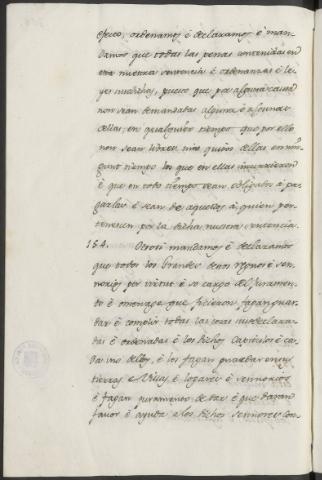 efeto, ordenamos é declaramos é man-
damos que todas las penas contenidas en
esta nuestra sentencia é ordenanzas é le-
yes susdichas, puesto que por alguna causa
non sean demandadas alguna é algunas
dellas, en qualquier tiempo que por ello
non sean livres nin quitos dellas en nin-
gunt tiempo los que en ellas incurrieren
é que en todo tiempo sean obligados á pa-
garlas é sean de aquellos á quien per-
tenescen por la dicha nuestra sentencia.
154. Otrosi mandamos é declaramos
que todos los Grandes destos regnos é sen-
norios por virtud é so cargo del juramento
é omenage que ficieron, fagan guar-
dar é complir todas las cosas susdeclara-
das é ordenadas é los dichos Capitulos é ca-
da uno dellos, é los fagan guardar en sus
tierras é Villas é logares é sennorios
é fagan juramento de dar é que daran
favor é ayuda a los dichos sennores con-